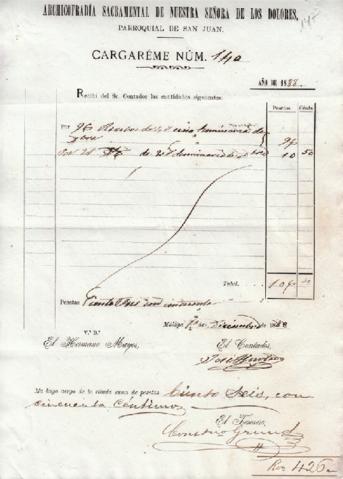 ARCHICOFRADÍA SACRAMENTAL DE NUESTRA SEÑORA DE LOS DOLORES,
PARROQUIAL DE SAN JUAN.
CARGARÉME NÚM. 140
AÑO DE 1888.
Recibí del Sr. Contador las cantidades siguientes:
Pesetas Cénts.
Por 96
96
de
10 50
Total. 106 50
Pesetas Ciento seis con cincuenta
Málaga 1º de Diciembre de 1888
V.º B.º
El Hermano Mayor, El Contador,
José
Me hago cargo de la citada suma de pesetas Ciento seis, con
cincuenta céntimos
El Tesorero,
Rvn 426